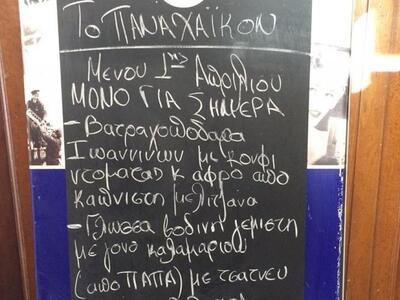 Το ΠΑΝΑΧΑΪΚΟΝ
Μενου 1ης Απριλιου
ΜΟΝΟ ΓΙΑ ΣΗΜΕΡΑ
- Βατραχοποδαρα
Ιωαννινων με κονφι
ντοματας κ αφρο απο
καπνιστη μελιτζανα
- Γλωσσα βοδινη γεμιστη
με γονο καλαμαριου
(απο ΠΑΠΑ) με τσατνευ